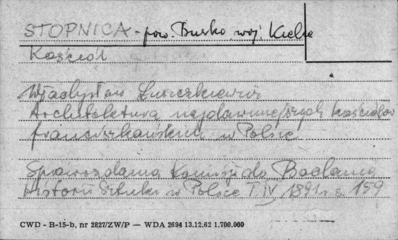 STOPNICA - pow. Busko woj Kielce
Kościół
Władysław Łuszczkiewicz
Architektura najdawniejszych kościołów
franciszkańskich w Polsce
Sprawozdania Komisji do Badania
Historii Sztuki w Polsce T. IV, 1891 r. s. 159
CWD - B-15-b, nr 2827/ZW/P — WDA 2694 13.12.62 1.700.000